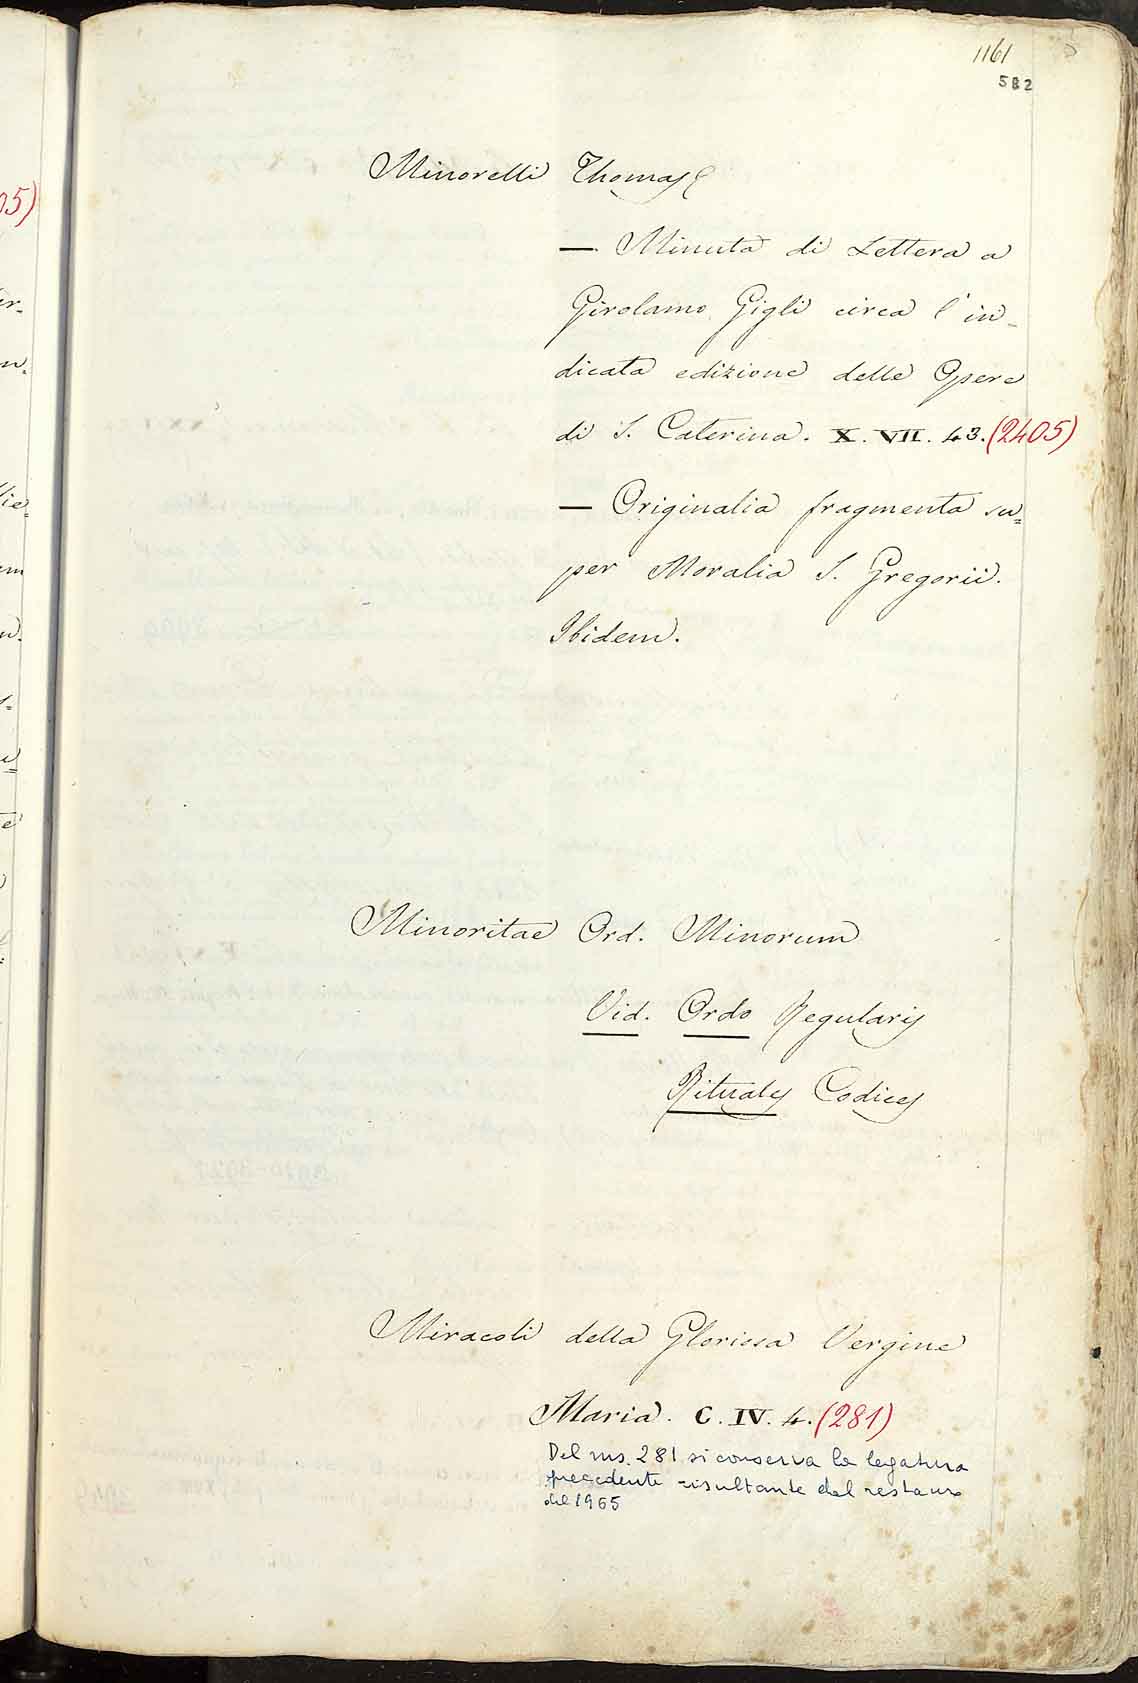 1161
582
Minorelli Thomas
— Minuta di Lettera a
Girolamo Gigli circa l'in-
dicata edizione delle Opere
di S. Caterina. X. VII. 43. (2405)
— Originalia fragmenta su=
per Moralia S. Gregorii.
Ibidem.
Minoritae Ord. Minorum
Vid. Ordo Regularis
Rituales Codices
Miracoli della Gloriosa Vergine
Maria. C. IV. 4. (281)
Del ms. 281 si conserva la legatura
precedente risultante dal restauro
del 1965